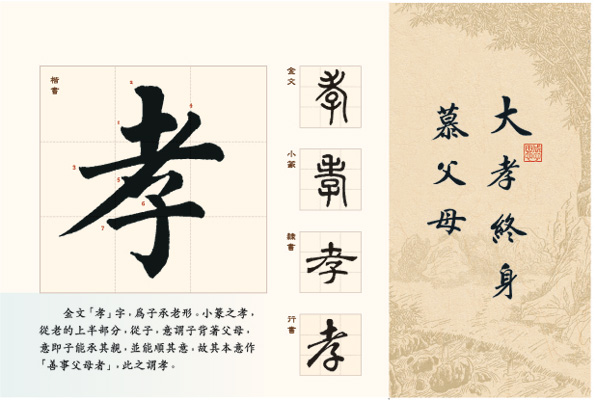 楷書
孝
金文「孝」字，為子承老形。小篆之孝，
從老的上半部分，從子，意謂子背著父母，
意即子能承其親，並能順其意，故其本意作
「善事父母者」，此之謂孝。
金文
孝
小篆
孝
隸書
孝
行書
孝
大孝終身
慕父母